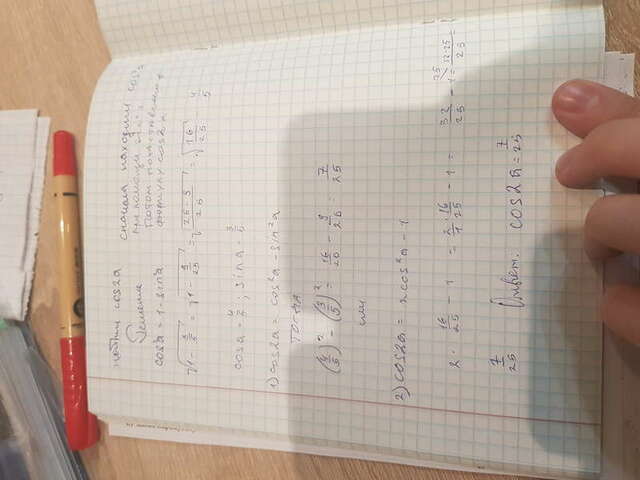 найти cos2a
сначала находим cos²a
Решение
при помощи
потом подставляем в
cos²a = 1 - sin²a
формулу cos2a
√1 - 3/5 = √1 - 9/25 = √25-9/25 = √16/25 4/5
cosa = 4/5 ; sina = 3/5
1) cos2a = cos²a - sin²a
тогда
(4/5)² - (3/5)² = 16/25 - 9/25 = 7/25
или
2) cos2a = 2cos²a - 1
2 · 16/25 - 1 = 2/1 · 16/25 - 1 = 32/25 - 1 25 = 32-25/25 =
7/25 Ответ. cos2a = 7/25